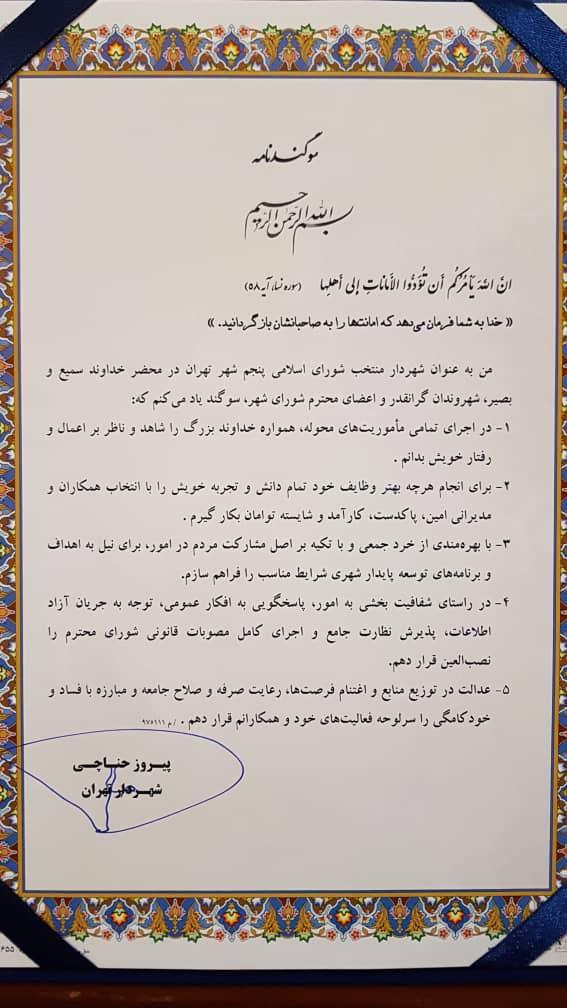 سوگندنامه
بسم الله الرحمن الرحیم
انَّ اللهَ یَأمُرُکُم أن تُؤَدُّوا الأماناتِ إلی أهلِها (سوره نساء آیه ۵۸)
« خدا به شما فرمان می‌دهد که امانت‌ها را به صاحبانشان بازگردانید. »
من به عنوان شهردار منتخب شورای اسلامی پنجم شهر تهران در محضر خداوند سمیع و
بصیر، شهروندان گرانقدر و اعضای محترم شورای شهر، سوگند یاد می‌کنم که:
۱- در اجرای تمامی مأموریت‌های محوله، همواره خداوند بزرگ را شاهد و ناظر بر اعمال و
رفتار خویش بدانم .
۲- برای انجام هرچه بهتر وظایف خود تمام دانش و تجربه خویش را با انتخاب همکاران و
مدیرانی امین، پاکدست، کارآمد و شایسته توامان بکار گیرم .
۳- با بهره‌مندی از خرد جمعی و با تکیه بر اصل مشارکت مردم در امور، برای نیل به اهداف
و برنامه‌های توسعه پایدار شهری شرایط مناسب را فراهم سازم.
۴- در راستای شفافیت بخشی به امور، پاسخگویی به افکار عمومی، توجه به جریان آزاد
اطلاعات، پذیرش نظارت جامع و اجرای کامل مصوبات قانونی شورای محترم را
نصب‌العین قرار دهم.
۵- عدالت در توزیع منابع و اغتنام فرصت‌ها، رعایت صرفه و صلاح جامعه و مبارزه با فساد و
خودکامگی را سرلوحه فعالیت‌های خود و همکارانم قرار دهم . /م ۹۷۵۱۱۱
پیروز حناچی
شهردار تهران